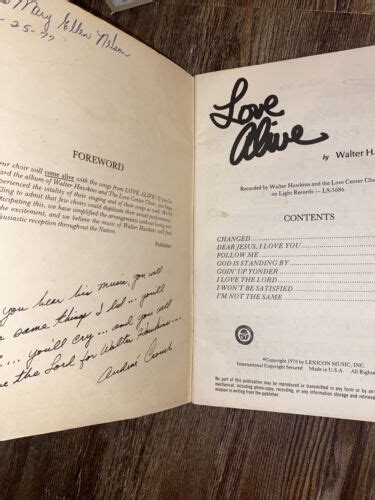 Mary Ellen Nelson
-25-77
FOREWORD
our choir will come alive with the songs from LOVE ALIVE! If you've
heard the album of Walter Hawkins and The Love Center Choir, you have
experienced the vitality of their singing and of their songs as well. We're
admitting to admit that few choirs could duplicate their actual performance.
Anticipating this, we have simplified the arrangements without losing any
the excitement, and we believe the music of Walter Hawkins will find
enthusiastic reception throughout the Nation.
Publisher
you hear his music, you will
same things I did... you'll
... you'll cry... and you will
the Lord for Walter Hawkins...
Andraé Crouch
Love
Alive
by Walter H
Recorded by Walter Hawkins and the Love Center Choi
on Light Records — LS-5686
CONTENTS
CHANGED
DEAR JESUS, I LOVE YOU
FOLLOW ME
GOD IS STANDING BY
GOIN' UP YONDER
I LOVE THE LORD
I WON'T BE SATISFIED
I'M NOT THE SAME
©Copyright 1976 by LEXICON MUSIC, INC.
International Copyright Secured Made in U.S.A. All Rights
No part of this publication may be reproduced or transmitted in any form or by any
mechanical, including photo-copy, recording, or any information storage and retrieval
mission in writing from the publisher.